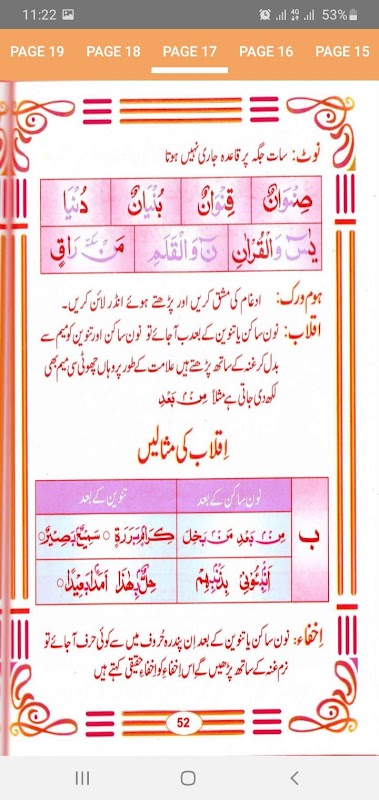 11:22 53%
PAGE 19 PAGE 18 PAGE 17 PAGE 16 PAGE 15
نوٹ: سات جگہ پر قاعدہ جاری نہیں ہوتا
صِنْوَانٌ قِنْوَانٌ بُنْيَانٌ دُنْيَا
يٰسٓ وَالْقُرْاٰنِ نٓ وَالْقَلَمِ مَنْ سكتة رَاقٍ
ہوم ورک: ادغام کی مشق کریں اور پڑھتے ہوئے انڈر لائن کریں۔
اقلاب: نون ساکن یا تنوین کے بعد ب آجائے تو نون ساکن اور تنوین کو میم سے
بدل کر غنہ کے ساتھ پڑھتے ہیں علامت کے طور پر وہاں چھوٹی سی میم بھی
لکھ دی جاتی ہے مثلاً مِنْۢ بَعْدِ
اِقلاب کی مثالیں
نون ساکن کے بعد تنوین کے بعد
ب مِنْۢ بَعْدِ مَنْۢ بَخِلَ كِرَامٍۢ بَرَرَةٍ ○ سَمِيْعٌۢ بَصِيْرٌ ○
اَنْۢبِئُوْنِيْ بِذَنْۢبِهِمْ حِلٌّۢ بِهٰذَا اَمَدًۢا بَعِيْدًا ○
اِخفاء: نون ساکن یا تنوین کے بعد اِن پندرہ حُروف میں سے کوئی حرف آجائے تو
نرم غنہ کے ساتھ پڑھیں گے اس اِخفاء کو اِخفاءِ حقیقی کہتے ہیں
52